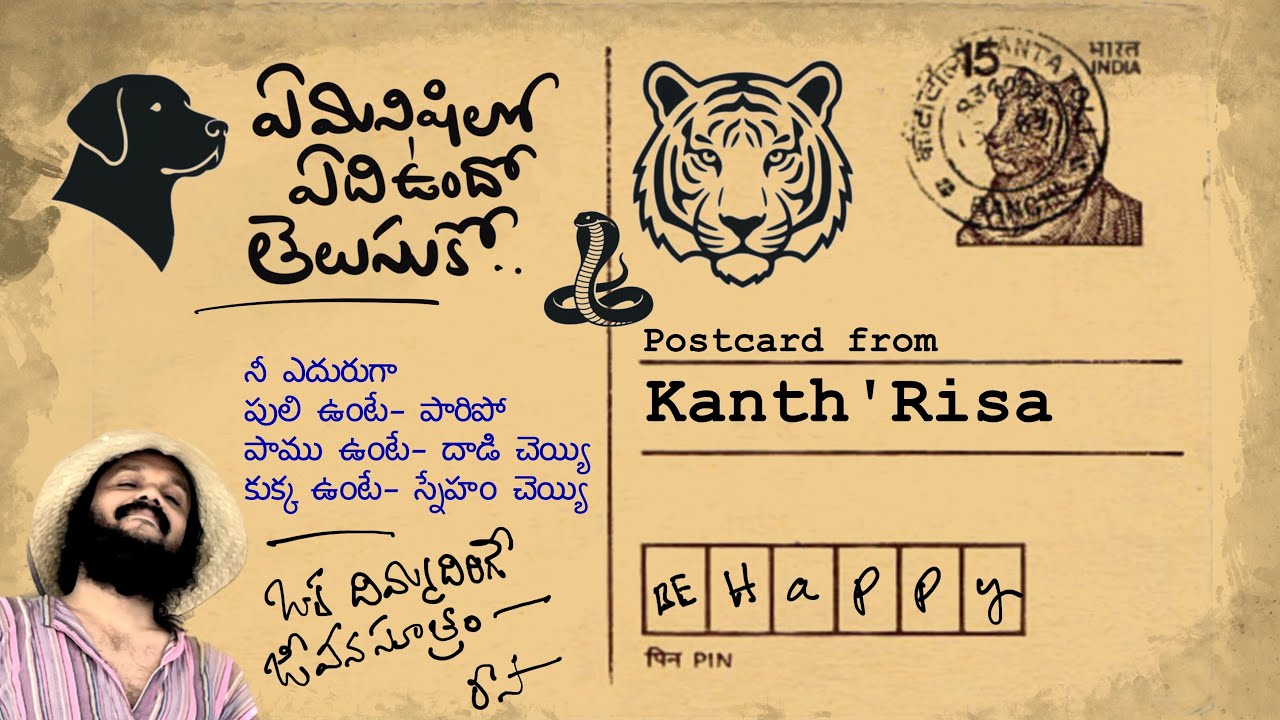 ఏ మనిషిలో
ఏది ఉందో
తెలుసుకో..
నీ ఎదురుగా
పులి ఉంటే- పారిపో
పాము ఉంటే- దాడి చెయ్యి
కుక్క ఉంటే- స్నేహం చెయ్యి
ఒక దిమ్మదిరిగే
జీవన సూత్రం
15
भारत
INDIA
Postcard from
Kanth'Risa
BE Happy
पिन PIN